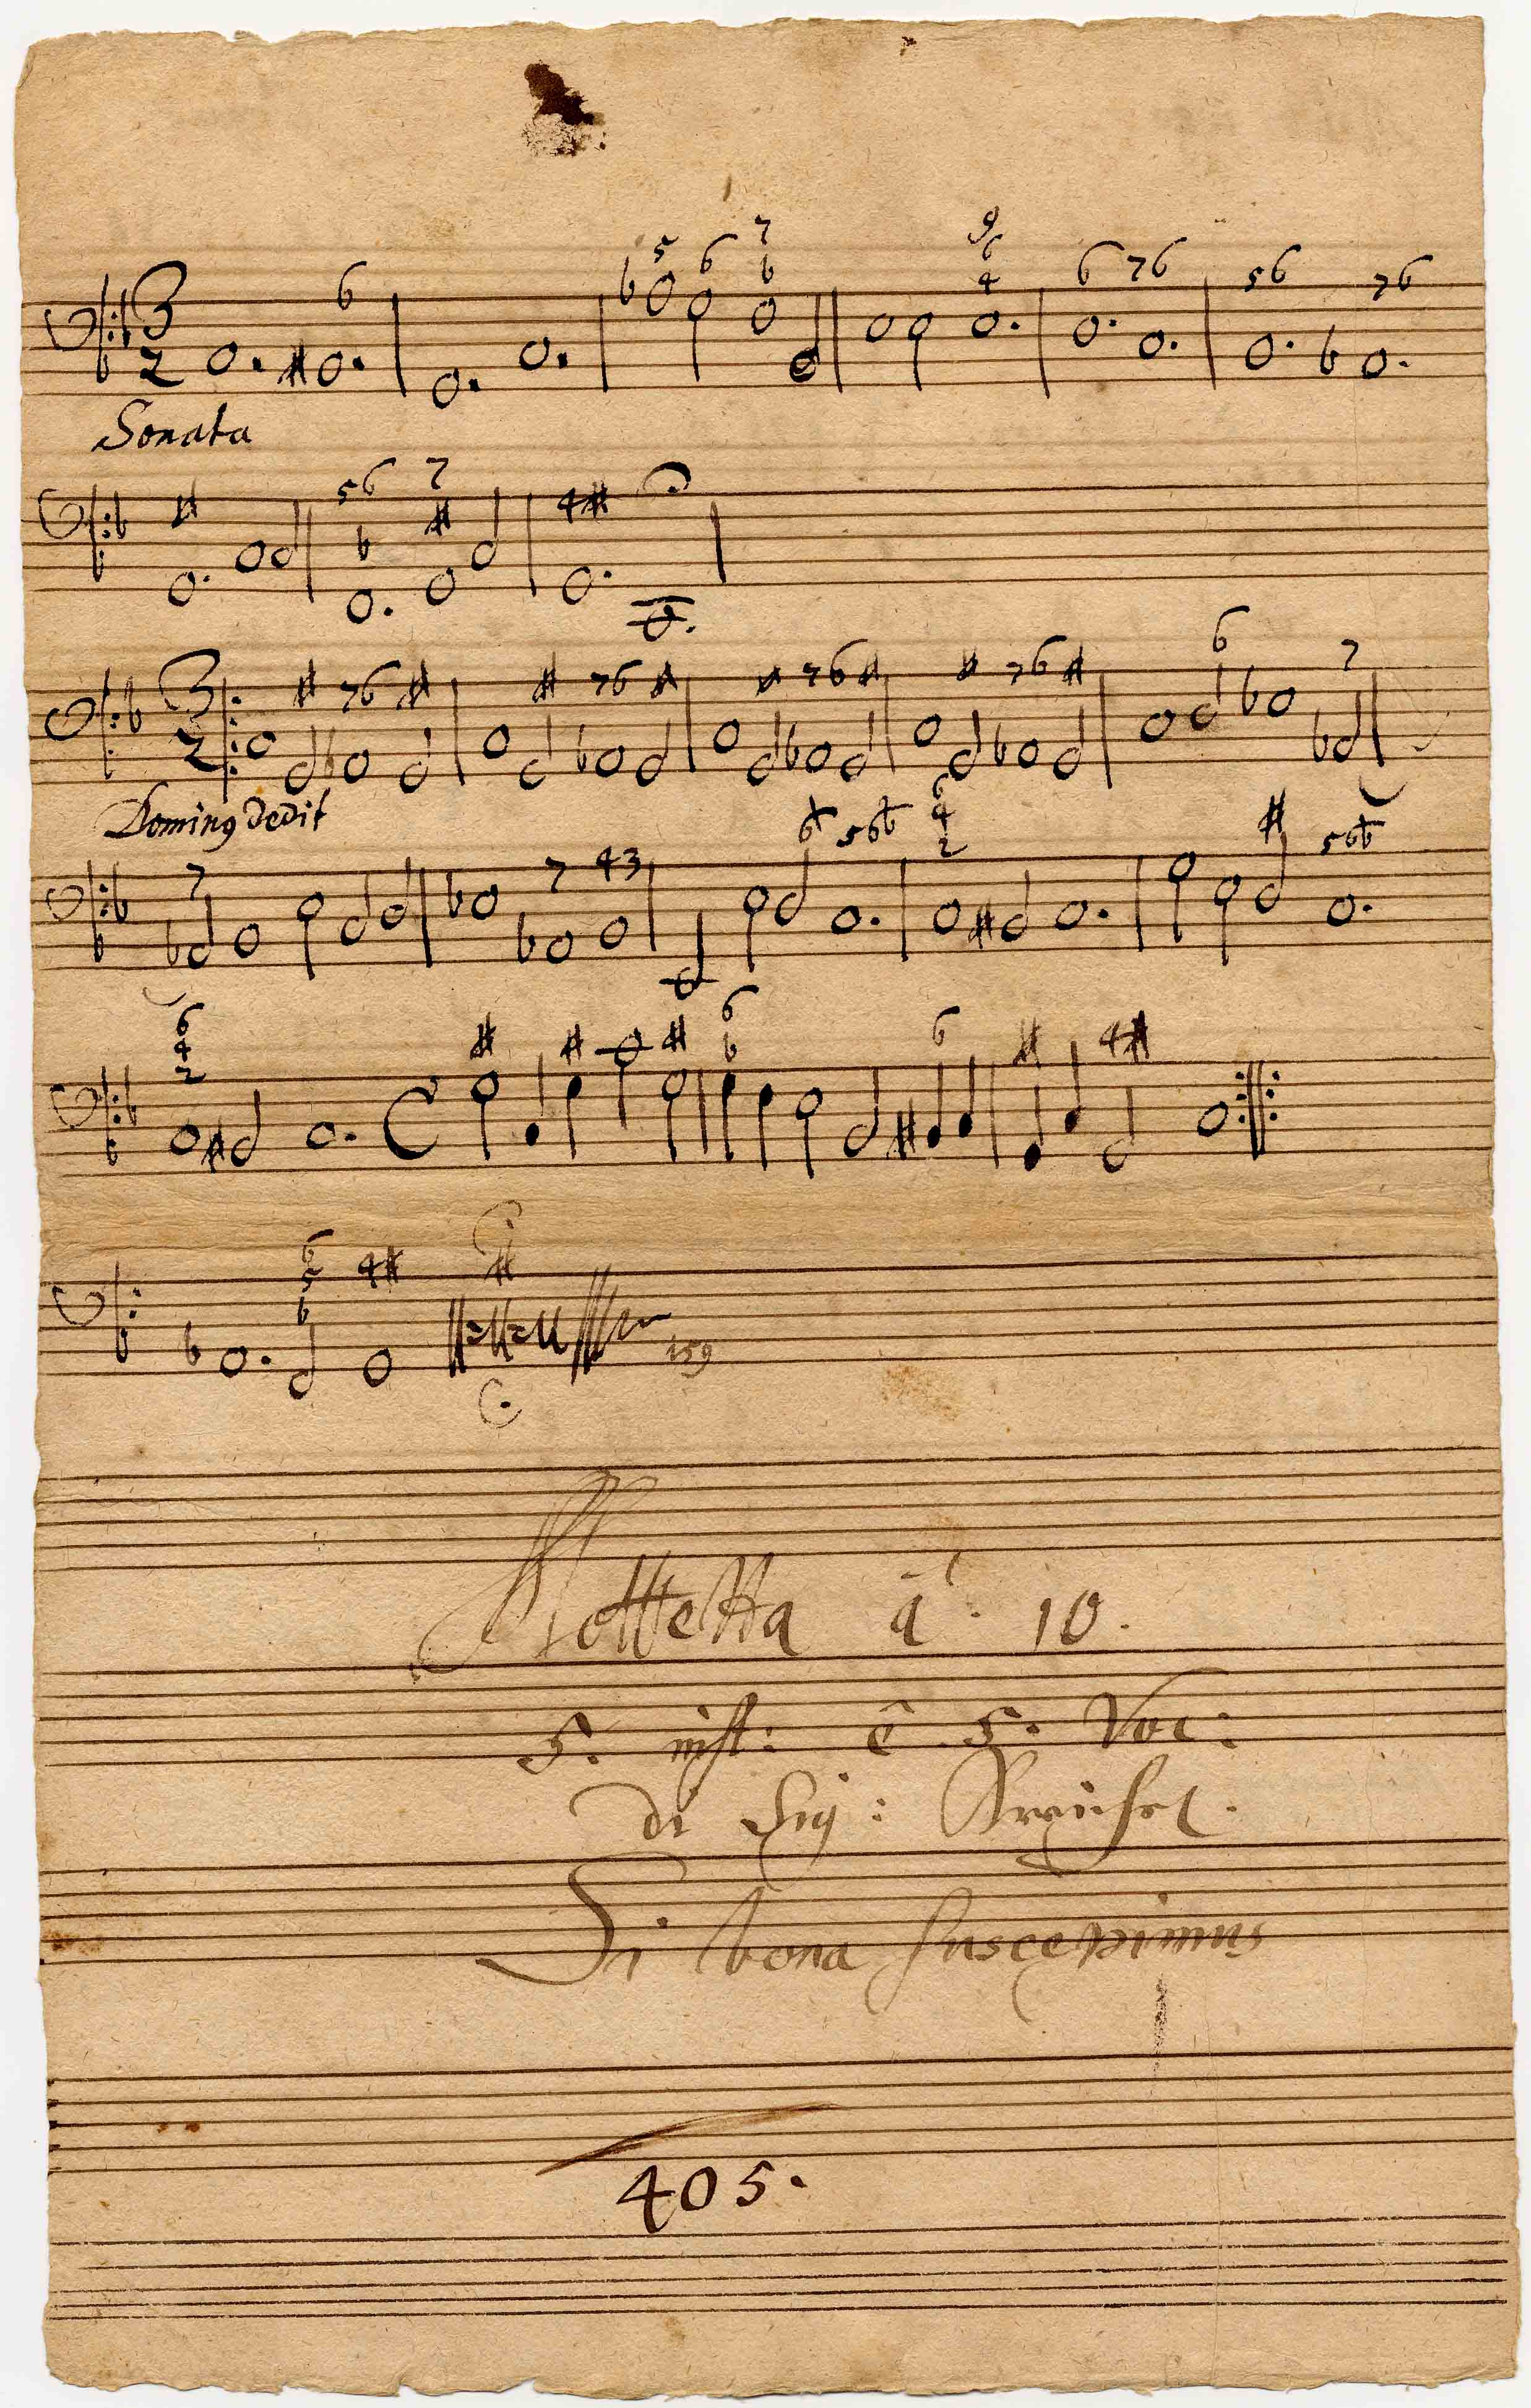 Sonata
Doming dedit
159
Mottetta â. 10.
5. inst: ê. 5. Voc:
di Sig:
Si bona suscepimus
405.